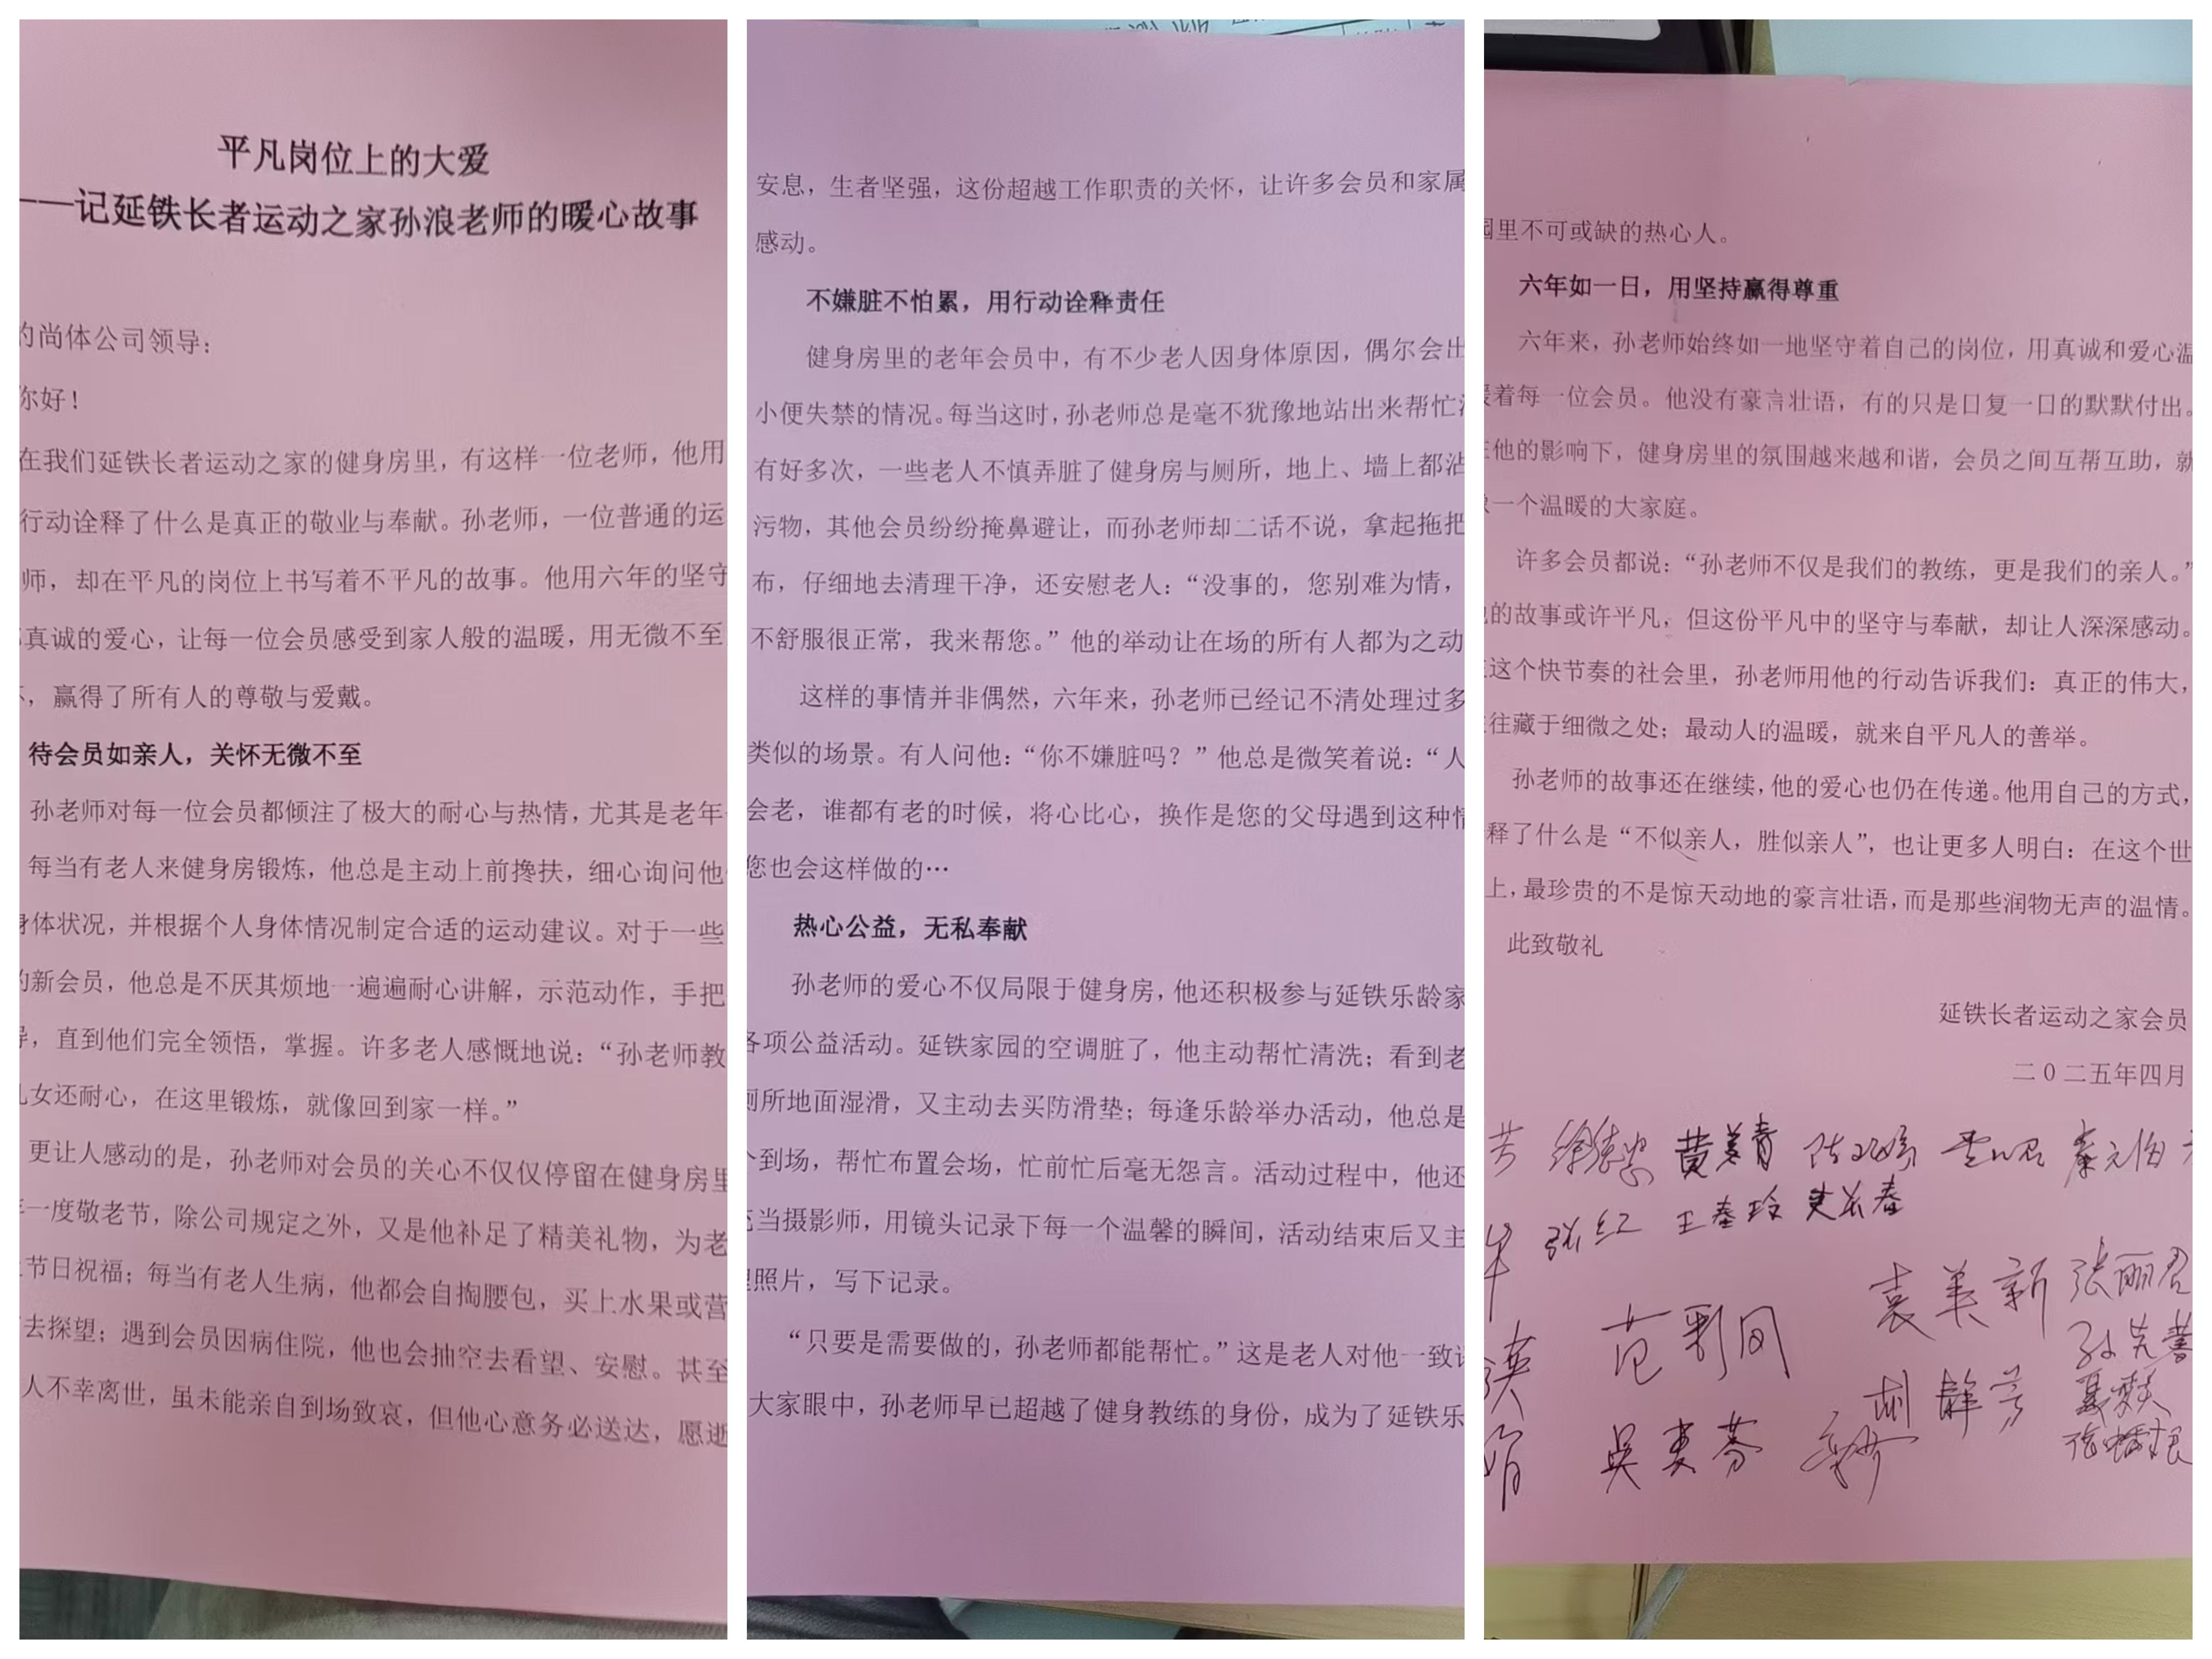 平凡岗位上的大爱
——记延铁长者运动之家孙浪老师的暖心故事
的尚体公司领导：
你好！
在我们延铁长者运动之家的健身房里，有这样一位老师，他用
行动诠释了什么是真正的敬业与奉献。孙老师，一位普通的运
师，却在平凡的岗位上书写着不平凡的故事。他用六年的坚守
真诚的爱心，让每一位会员感受到家人般的温暖，用无微不至
，赢得了所有人的尊敬与爱戴。
待会员如亲人，关怀无微不至
孙老师对每一位会员都倾注了极大的耐心与热情，尤其是老年
每当有老人来健身房锻炼，他总是主动上前搀扶，细心询问他
身体状况，并根据个人身体情况制定合适的运动建议。对于一些
的新会员，他总是不厌其烦地一遍遍耐心讲解，示范动作，手把
导，直到他们完全领悟，掌握。许多老人感慨地说：“孙老师教
儿女还耐心，在这里锻炼，就像回到家一样。”
更让人感动的是，孙老师对会员的关心不仅仅停留在健身房里
年一度敬老节，除公司规定之外，又是他补足了精美礼物，为老
节日祝福；每当有老人生病，他都会自掏腰包，买上水果或营
去探望；遇到会员因病住院，他也会抽空去看望、安慰。甚至
人不幸离世，虽未能亲自到场致哀，但他心意务必送达，愿逝
安息，生者坚强，这份超越工作职责的关怀，让许多会员和家属
感动。
不嫌脏不怕累，用行动诠释责任
健身房里的老年会员中，有不少老人因身体原因，偶尔会出
小便失禁的情况。每当这时，孙老师总是毫不犹豫地站出来帮忙
有好多次，一些老人不慎弄脏了健身房与厕所，地上、墙上都沾
污物，其他会员纷纷掩鼻避让，而孙老师却二话不说，拿起拖把
布，仔细地去清理干净，还安慰老人：“没事的，您别难为情，
不舒服很正常，我来帮您。”他的举动让在场的所有人都为之动
这样的事情并非偶然，六年来，孙老师已经记不清处理过多
类似的场景。有人问他：“你不嫌脏吗？”他总是微笑着说：“人
会老，谁都有老的时候，将心比心，换作是您的父母遇到这种情
您也会这样做的…
热心公益，无私奉献
孙老师的爱心不仅局限于健身房，他还积极参与延铁乐龄家
各项公益活动。延铁家园的空调脏了，他主动帮忙清洗；看到老
厕所地面湿滑，又主动去买防滑垫；每逢乐龄举办活动，他总是
个到场，帮忙布置会场，忙前忙后毫无怨言。活动过程中，他还
充当摄影师，用镜头记录下每一个温馨的瞬间，活动结束后又主
理照片，写下记录。
“只要是需要做的，孙老师都能帮忙。”这是老人对他一致
大家眼中，孙老师早已超越了健身教练的身份，成为了延铁乐
园里不可或缺的热心人。
六年如一日，用坚持赢得尊重
六年来，孙老师始终如一地坚守着自己的岗位，用真诚和爱心温
暖着每一位会员。他没有豪言壮语，有的只是日复一日的默默付出。
在他的影响下，健身房里的氛围越来越和谐，会员之间互帮互助，就
像一个温暖的大家庭。
许多会员都说：“孙老师不仅是我们的教练，更是我们的亲人。”
他的故事或许平凡，但这份平凡中的坚守与奉献，却让人深深感动。
在这个快节奏的社会里，孙老师用他的行动告诉我们：真正的伟大，
往往藏于细微之处；最动人的温暖，就来自平凡人的善举。
孙老师的故事还在继续，他的爱心也仍在传递。他用自己的方式，
释了什么是“不似亲人，胜似亲人”，也让更多人明白：在这个世
上，最珍贵的不是惊天动地的豪言壮语，而是那些润物无声的温情。
此致敬礼
延铁长者运动之家会员
二0二五年四月
芳 黄美青 秦元伯
张红 王奎玲 吏长春
袁美新 张丽君
胡静芳
吴麦芬